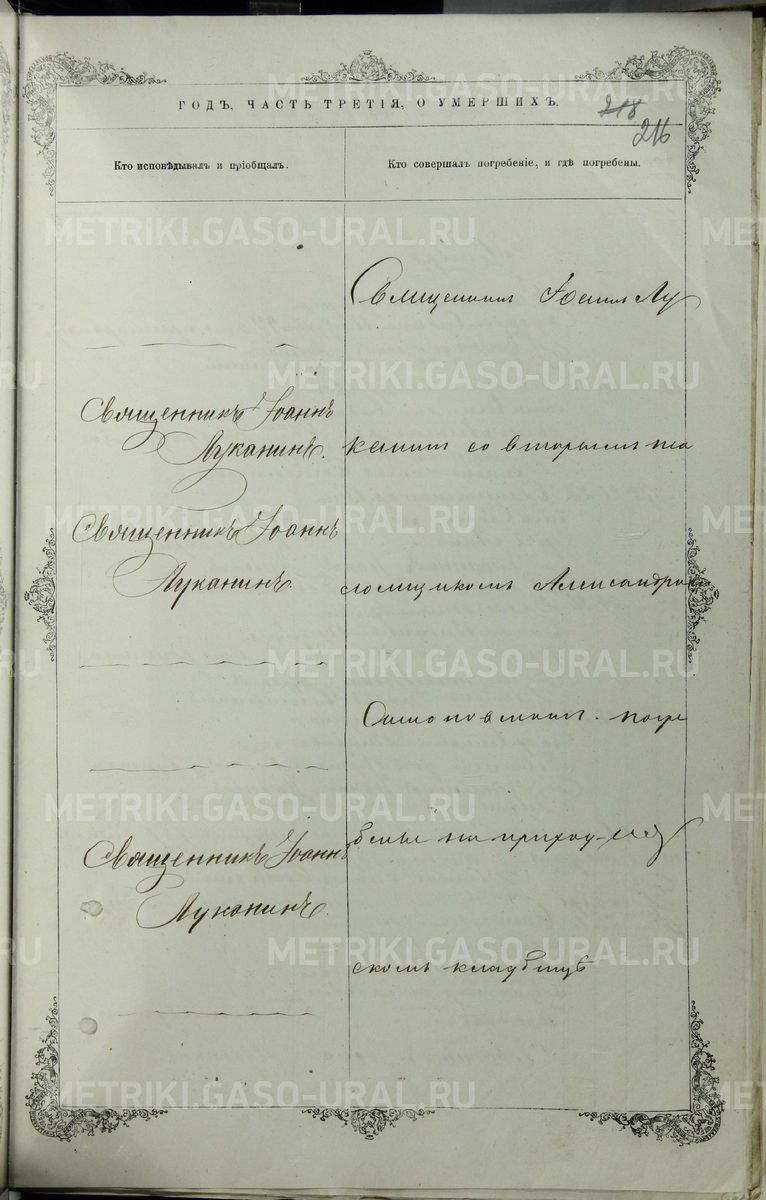 ГОДЪ, ЧАСТЬ ТРЕТІЯ, О УМЕРШИХЪ.
218
216
Кто исповѣдывалъ и пріобщалъ.
Кто совершалъ погребеніе, и гдѣ погребены.
METRIKI.GASO-URAL.RU
Священникъ Іоаннъ Лу
Священникъ Іоаннъ
Луканинъ.
канинъ со вторымъ пса
Священникъ Іоаннъ
Луканинъ.
ломщикомъ Александромъ
погре
Священникъ Іоаннъ
Луканинъ.
бены на приход-
скомъ кладбищѣ